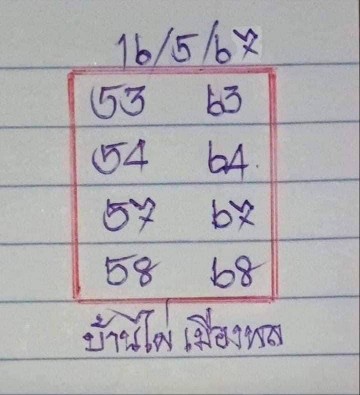 16/5/67
53 63
54 64
57 67
58 68
บ้านไผ่ เมืองพล